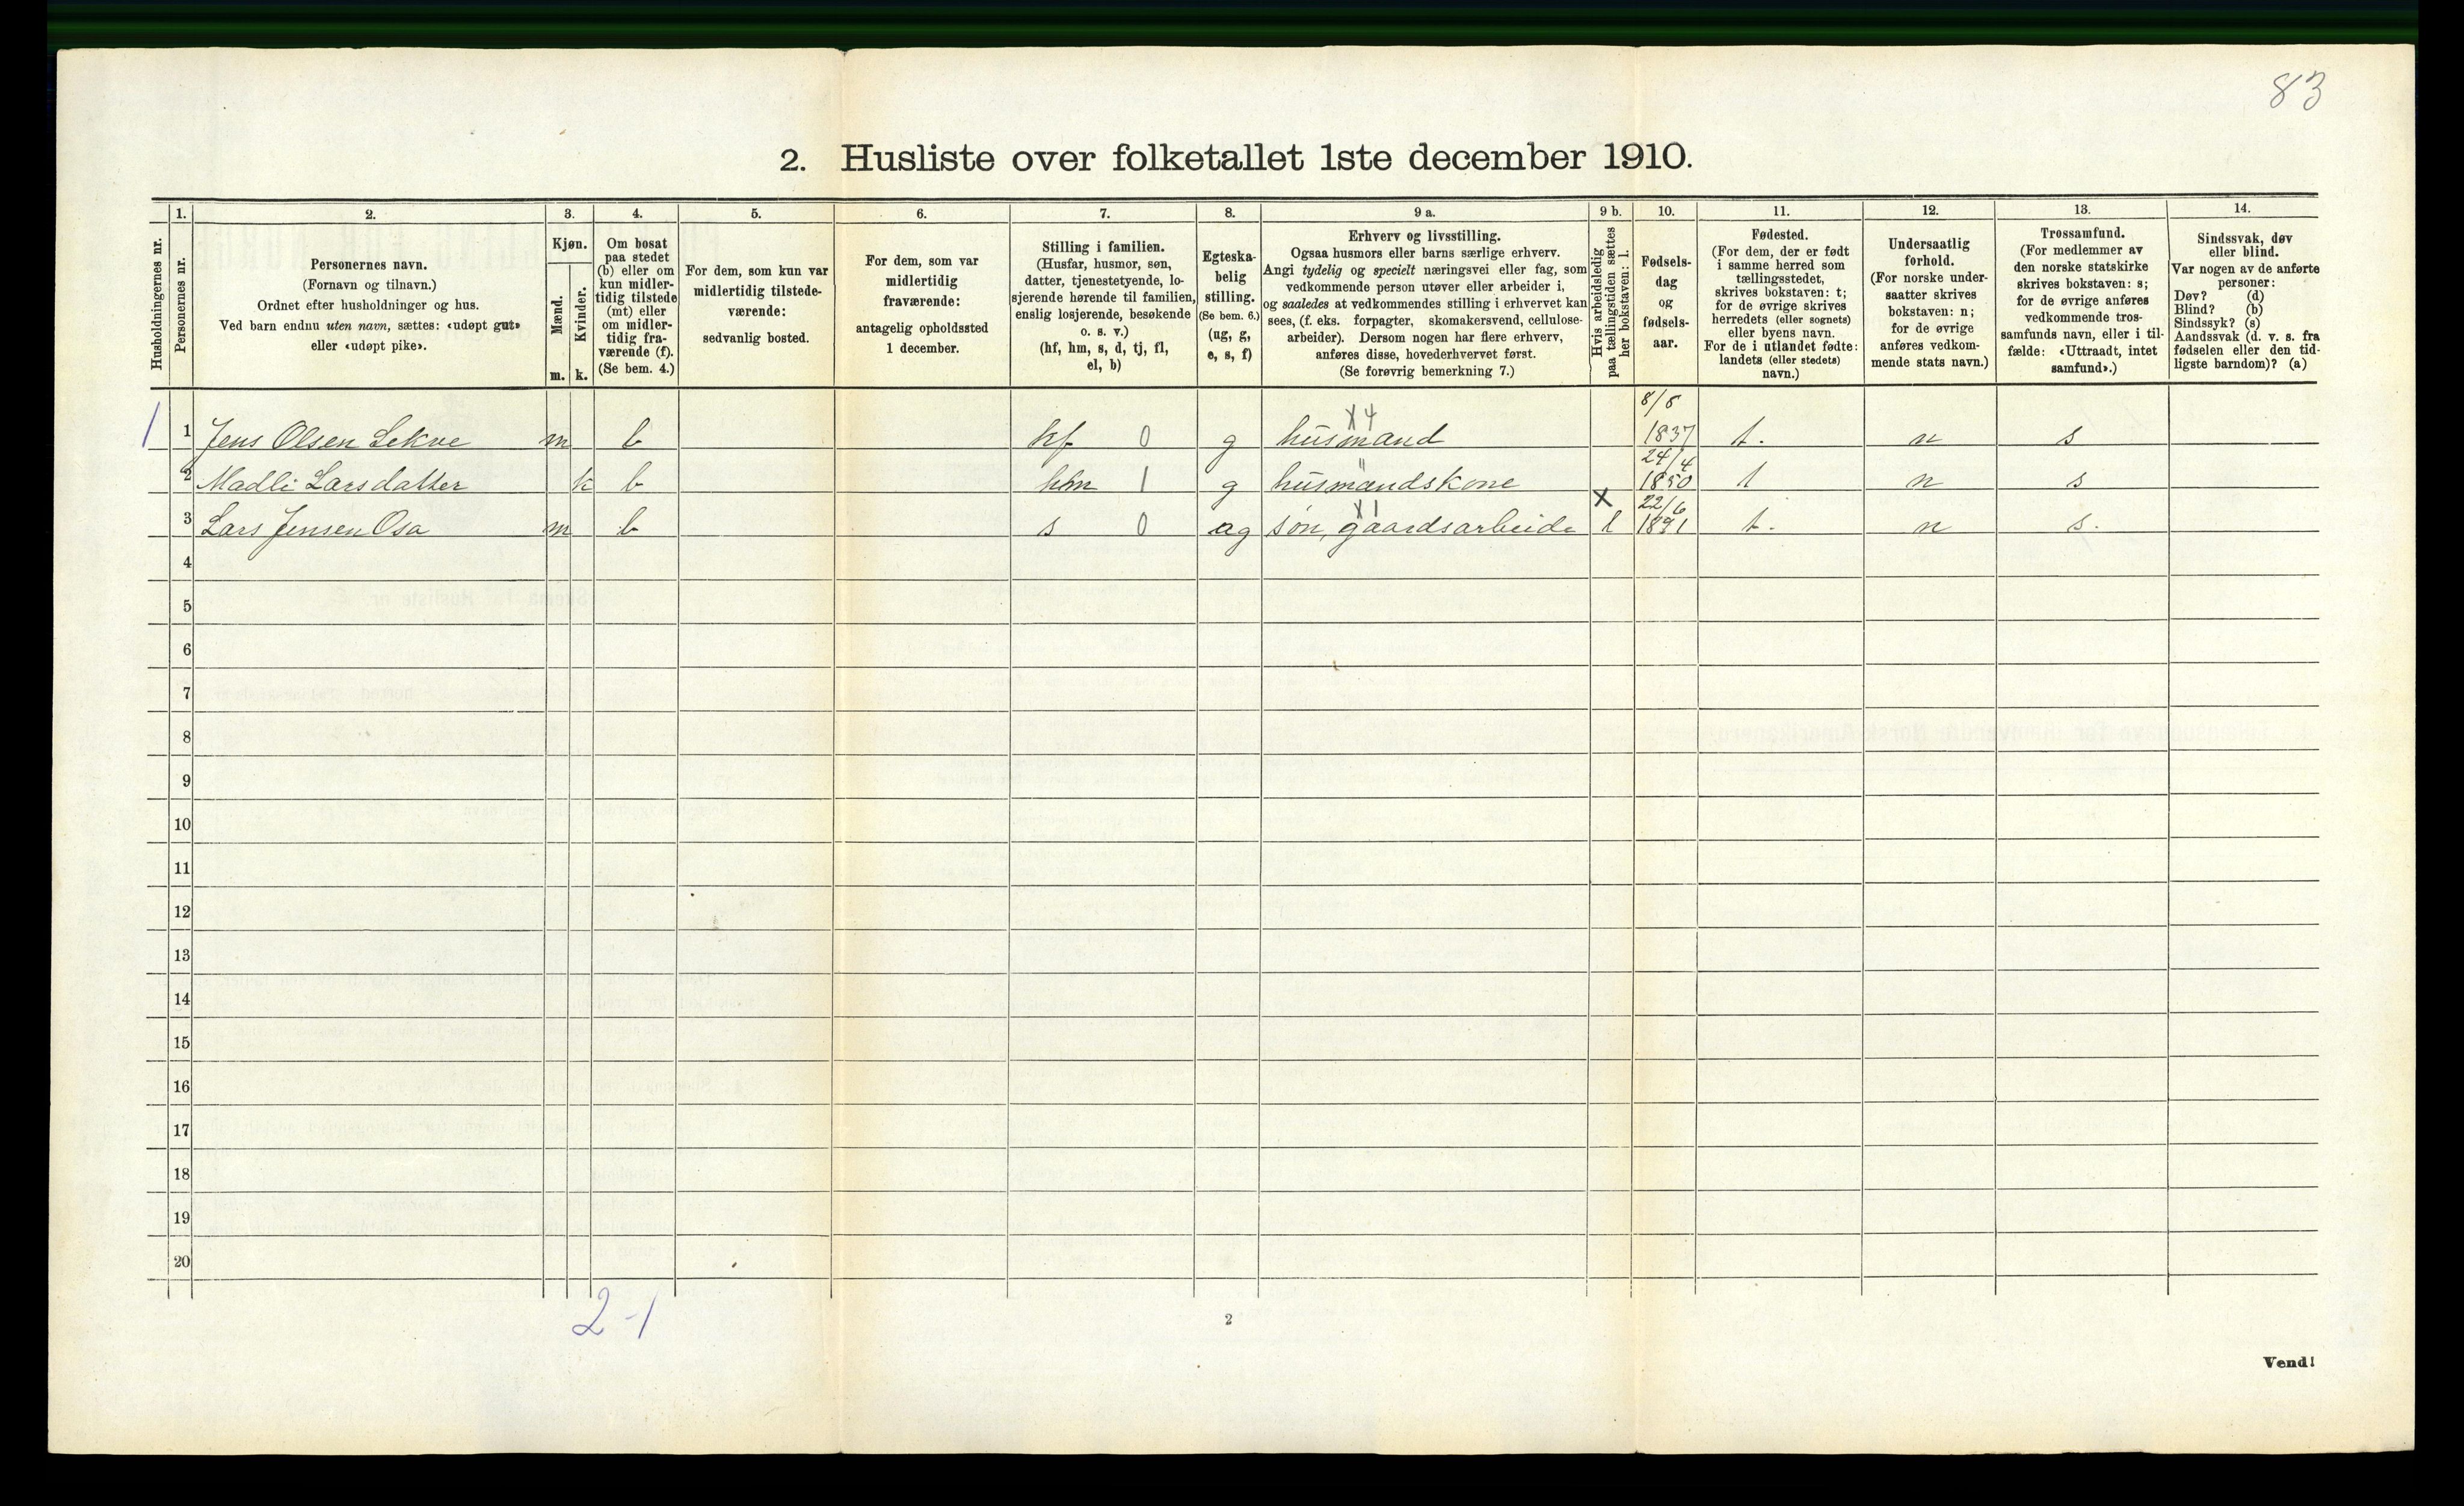 83
2. Husliste over folketallet 1ste december 1910.
Husholdningernes nr.
1.
Personernes nr.
2.
Personernes navn.
(Fornavn og tilnavn.)
Ordnet efter husholdninger og hus.
Ved barn endnu uten navn, sættes: «udøpt gut»
eller «udøpt pike».
3.
Kjøn.
Mænd.
Kvinder.
m. k.
4.
Om bosat
paa stedet
(b) eller om
kun midler-
tidig tilstede
(mt) eller
om midler-
tidig fra-
værende (f).
(Se bem. 4.)
5.
For dem, som kun var
midlertidig tilstede-
værende:
sedvanlig bosted.
6.
For dem, som var
midlertidig
fraværende:
antagelig opholdssted
1 december.
7.
Stilling i familien.
(Husfar, husmor, søn,
datter, tjenestetyende, lo-
sjerende hørende til familien,
enslig losjerende, besøkende
o. s. v.)
(hf, hm, s, d, tj, fl,
el, b)
8.
Egteska-
belig
stilling.
(Se bem. 6.)
(ug, g,
e, s, f)
9 a.
Erhverv og livsstilling.
Ogsaa husmors eller barns særlige erhverv.
Angi tydelig og specielt næringsvei eller fag, som
vedkommende person utøver eller arbeider i,
og saaledes at vedkommendes stilling i erhvervet kan
sees, (f. eks. forpagter, skomakersvend, cellulose-
arbeider). Dersom nogen har flere erhverv,
anføres disse, hovederhvervet først.
(Se forøvrig bemerkning 7.)
9 b.
Hvis arbeidsledig
paa tællingstiden sættes
her bokstaven: l.
10.
Fødsels-
dag
og
fødsels-
aar.
11.
Fødested.
(For dem, der er født
i samme herred som
tællingsstedet,
skrives bokstaven: t;
for de øvrige skrives
herredets (eller sognets)
eller byens navn.
For de i utlandet fødte:
landets (eller stedets)
navn.)
12.
Undersaatlig
forhold.
(For norske under-
saatter skrives
bokstaven: n;
for de øvrige
anføres vedkom-
mende stats navn.)
13.
Trossamfund.
(For medlemmer av
den norske statskirke
skrives bokstaven: s;
for de øvrige anføres
vedkommende tros-
samfunds navn, eller i til-
fælde: «Uttraadt, intet
samfund».)
14.
Sindssvak, døv
eller blind.
Var nogen av de anførte
personer:
Døv? (d)
Blind? (b)
Sindssyk? (s)
Aandssvak (d. v. s. fra
fødselen eller den tid-
ligste barndom)? (a)
X 4 8/8
1 1 Jens Olsen Lekve m b hf 0 g husmand 1837 t. n s
" 24/4
2 Madli Larsdatter k b hm 1 g husmandskone 1850 t n s
X 1 X 22/6
3 Lars Jensen Osa m b s 0 ug søn, gaardsarbeide l 1891 t. n s.
4
5
6
7
8
9
10
11
12
13
14
15
16
17
18
19
20
2-1
2
Vend!